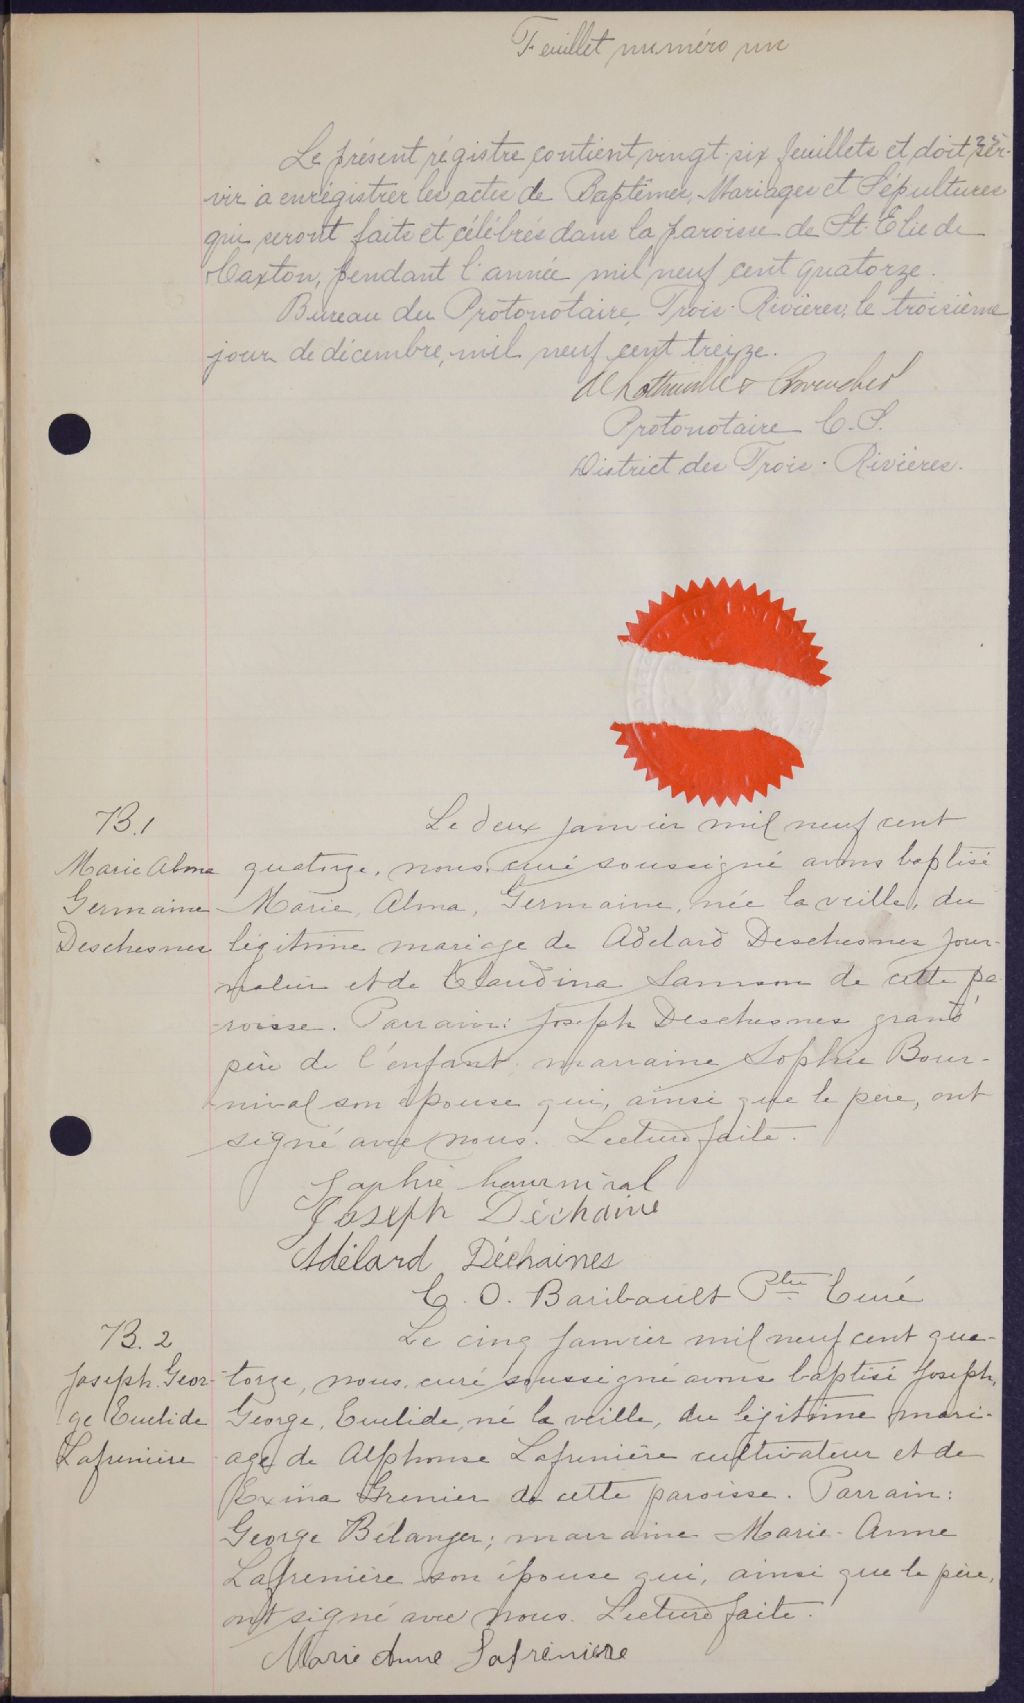 Feuillet numéro un
25
Le présent régistre contient vingt-six feuillets et doit ser-
vir à enrégistrer les actes de Baptêmes, Mariages et Sépultures
qui seront faits et célébrés dans la paroisse de St. Elie de
Caxton, pendant l'année mil neuf cent quatorze.
Bureau du Protonotaire, Trois-Rivières, le troisième
jour de décembre, mil neuf cent treize.
Protonotaire C. S.
District des Trois-Rivières.
B. 1
Marie Alma
Germaine
Deschesnes
Le deux janvier mil neuf cent
quatorze, nous, curé soussigné avons baptisé
Marie, Alma, Germaine, née la veille, du
légitime mariage de Adelard Deschesnes jour-
nalier et de Claudina Samson de cette pa
roisse. Parrain: Joseph Deschesnes grand
père de l'enfant; marraine Sophie Bour-
nival son épouse qui, ainsi que le père, ont
signé avec nous. Lecture faite.
Sophie bournival
Joseph Déchaine
Adélard Déchaines
C. O. Baribault Ptre Curé
B. 2
Joseph Geor-
ge Euclide
Lafrenière
Le cinq janvier mil neuf cent qua-
torze, nous, curé soussigné avons baptisé Joseph,
George, Euclide, né la veille, du légitime mari-
age de Alphonse Lafrenière cultivateur et de
Exina Grenier de cette paroisse. Parrain:
George Bélanger; marraine Marie-Anne
Lafrenière son épouse qui, ainsi que le père,
ont signé avec nous. Lecture faite.
Marie Anne Lafrenière